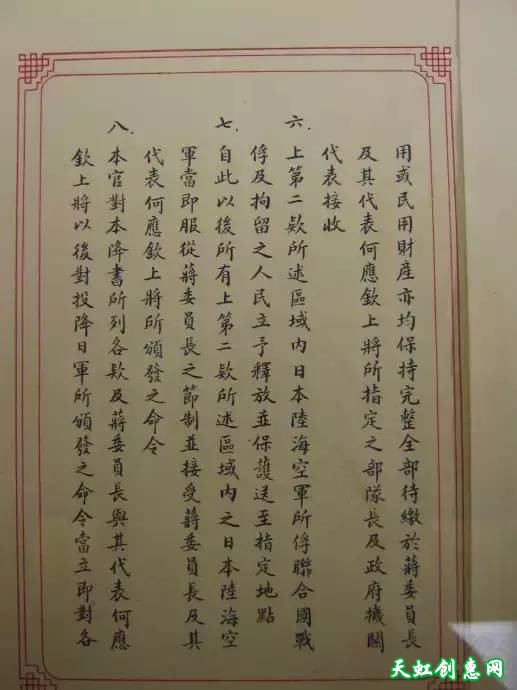 用或民用財產亦均保持完整全部待繳於蔣委員長
及其代表何應欽上將所指定之部隊長及政府機關
代表接收
六.上第二欵所述區域內日本陸海空軍所俘聯合國戰
俘及拘留之人民立予釋放並保護送至指定地點
七.自此以後所有上第二欵所述區域內之日本陸海空
軍當即服從蔣委員長之節制並接受蔣委員長及其
代表何應欽上將所頒發之命令
八.本官對本降書所列各欵及蔣委員長與其代表何應
欽上將以後對投降日軍所頒發之命令當立即對各
天虹创惠网